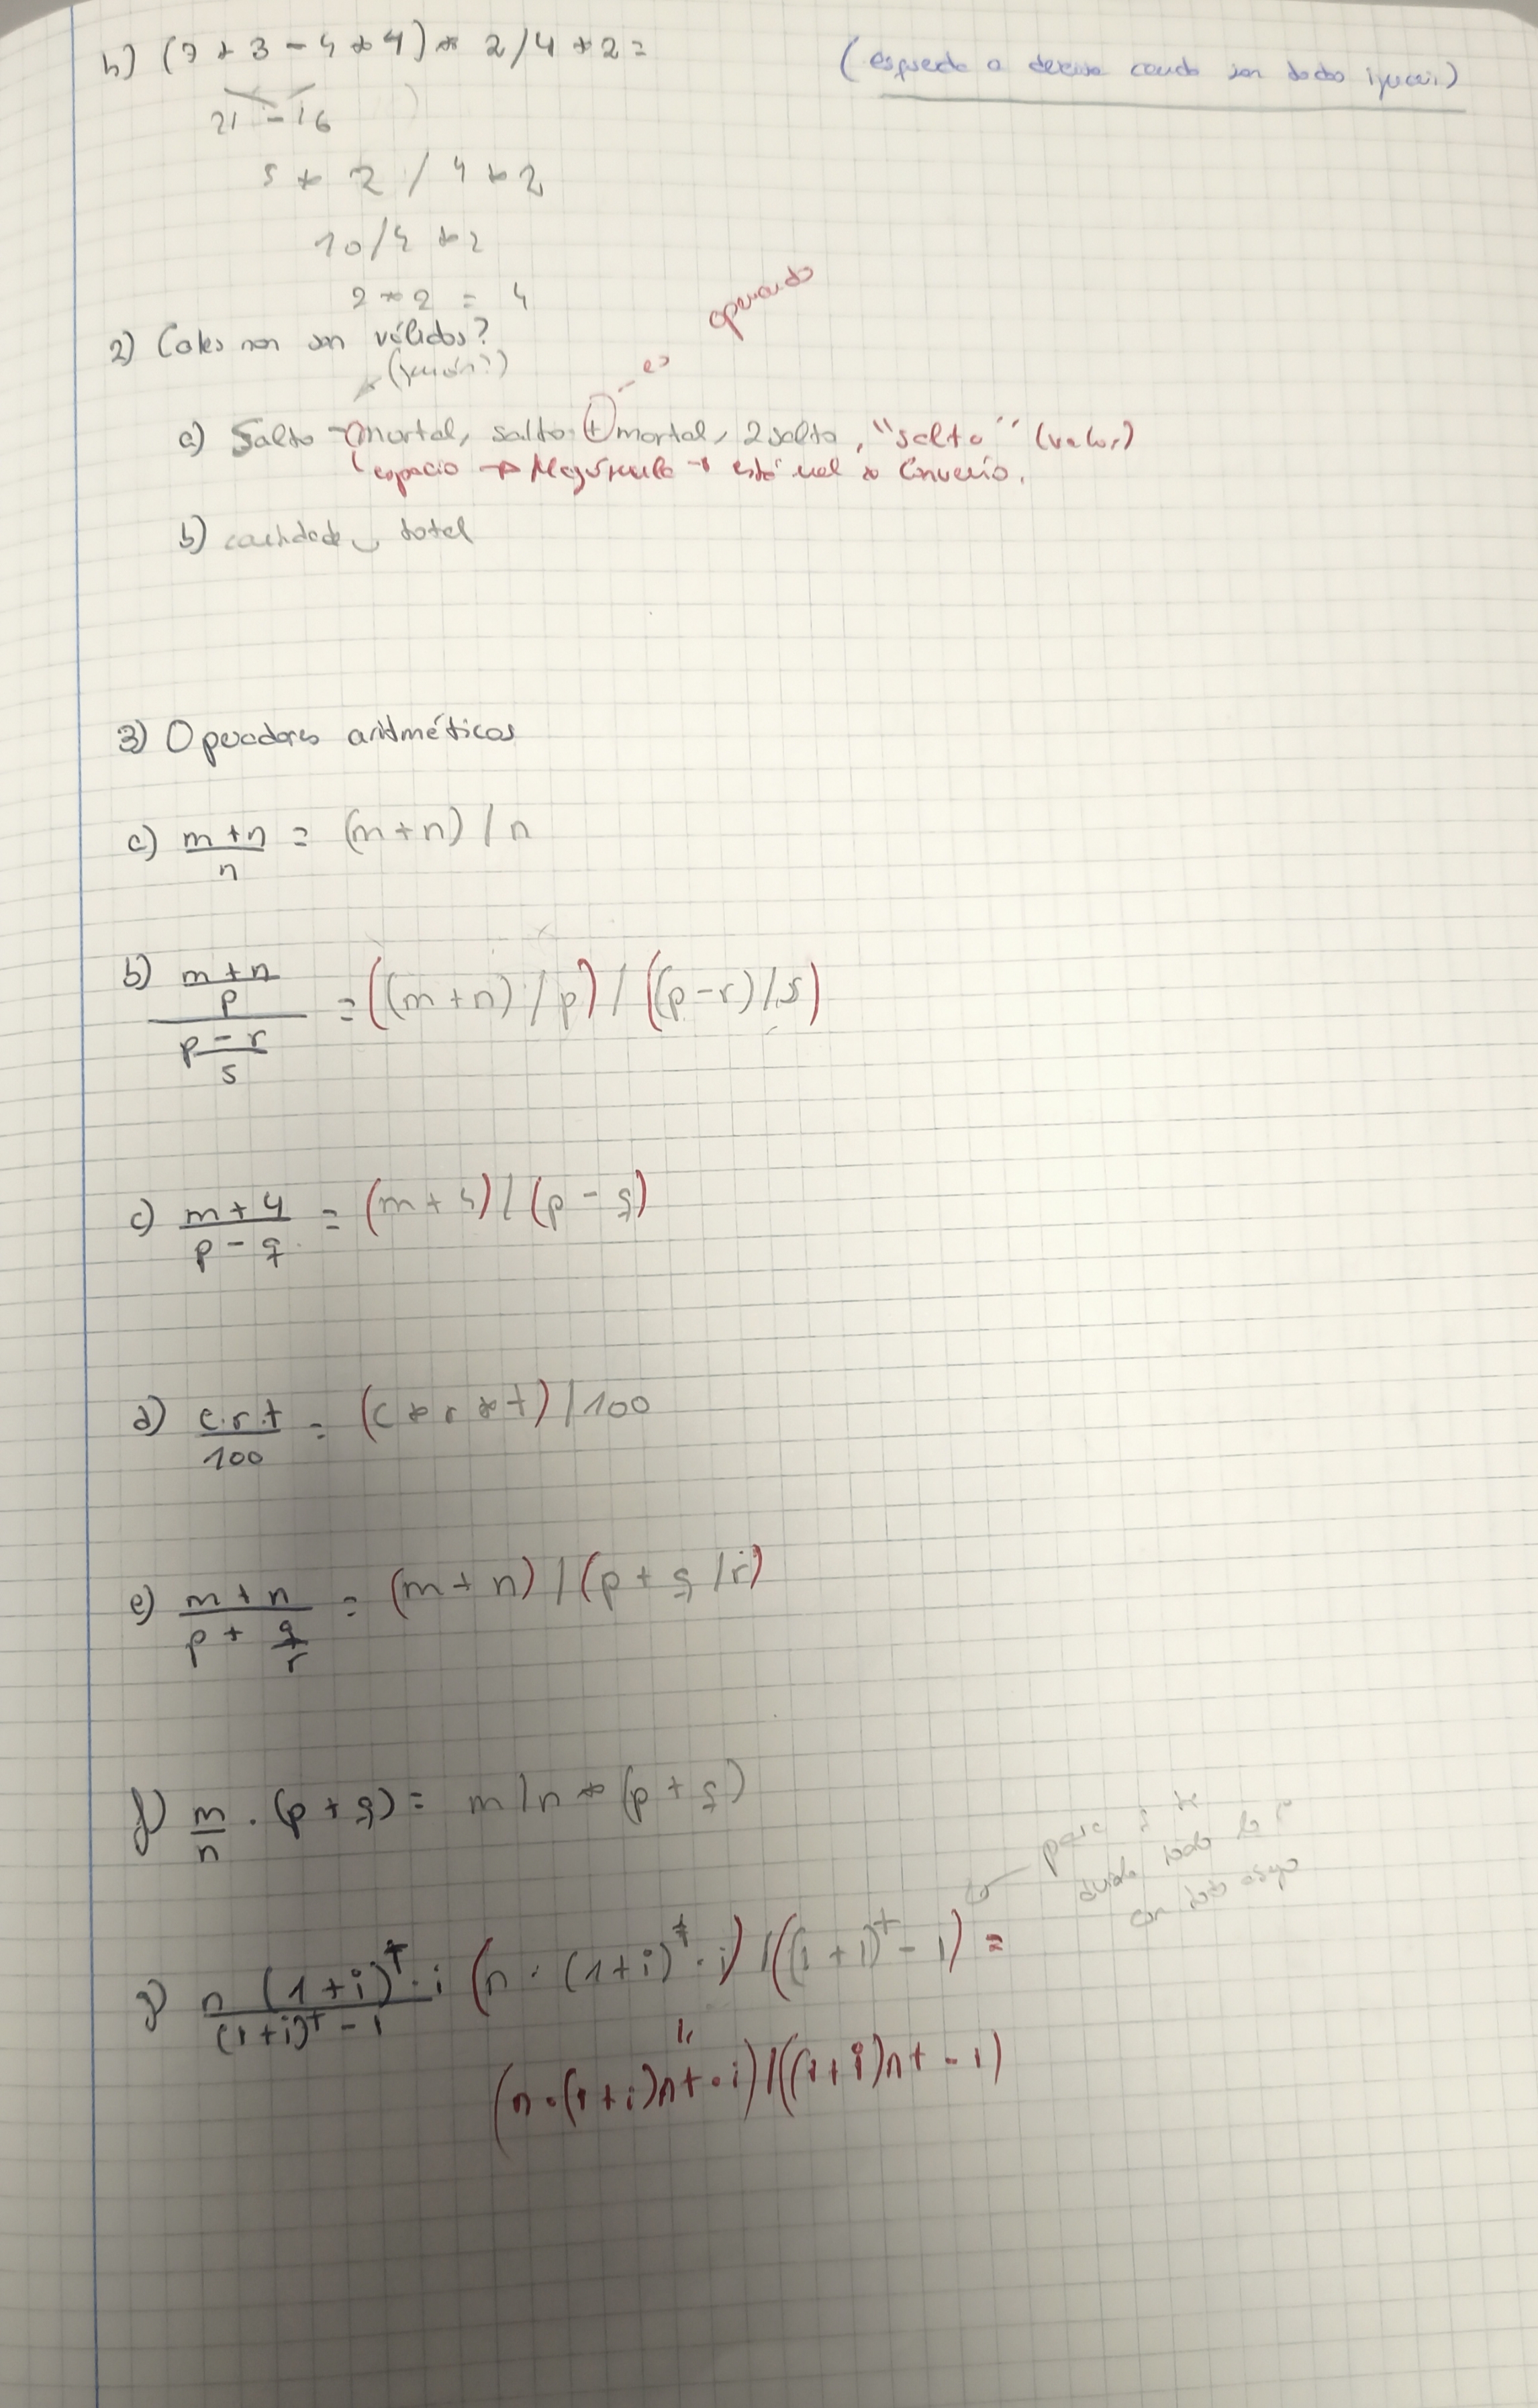 h) (7 * 3 - 4 * 4) * 2 / 4 * 2 =
(esquerda a dereita cando son todos iguais)
21 - 16
5 * 2 / 4 * 2
10 / 4 * 2
2 * 2 = 4
2) Cales non son válidos?
(guión?)
es operando
a) Salto - mortal, salto + mortal, 2salto, "salto" (valor)
espacio → Mayúscula → está mal x Convenio.
b) cantidade total
3) Operadores aritméticos
a) m + n / n = (m + n) / n
b) m + n / p / p - r / s = ((m + n) / p) / ((p - r) / s)
c) m + 4 / p - q = (m + 4) / (p - q)
d) c.r.t / 100 = (c * r * t) / 100
e) m + n / p + q / r = (m + n) / (p + q / r)
f) m / n . (p + q) = m / n * (p + q)
para
todo lo
con todo
g) n (1 + i)^t . i / (1 + i)^t - 1 (n . (1 + i)^t . i) / ((1 + i)^t - 1) =
(n . (1 + i)^t . i) / ((1 + i)^t - 1)